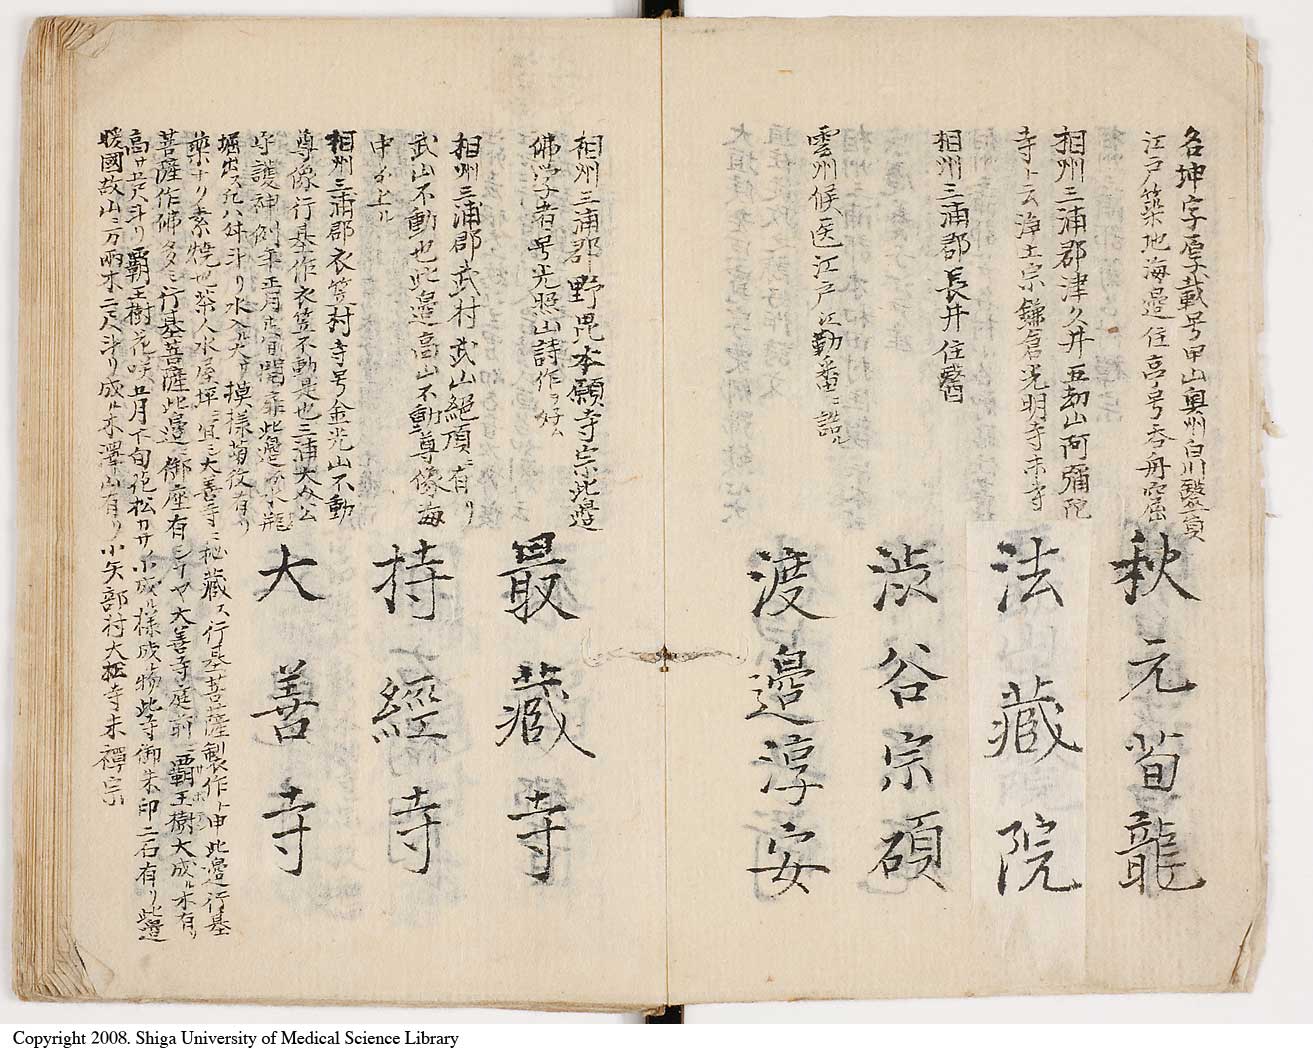 名坤字厚載号甲山奥州白川醫員
江戸築地海邉住亭号呑舟窟
秋元荀龍
相州三浦郡津久井五劫山阿彌陀
寺ト云浄土宗鎌倉光明寺末寺
法藏院
相州三浦郡長井住醫
渋谷宗碩
雲州候医江戸江勤番ニ詣ル
渡邉淳安
相州三浦郡野毘本願寺宗此邉
佛学者号光照山詩作ヲ好ム
最藏寺
相州三浦郡武村武山絶頂ニ有リ
武山不動也此邉高山不動尊像海
中ゟ上ル
持經寺
相州三浦郡衣笠村寺号金光山不動
尊像行基作衣笠不動是也三浦大介公
守護神例年正月
堀出ス凡八合斗リ水入ル大サ模様菊紋有リ
薬ナリ素焼也茶人水厚揮ニ宜シ大善寺ニ秘藏ス行基菩薩製作ト申此邉行基
菩薩作佛多シ行基菩薩此邉ニ御座有シナヤ大善寺庭前ニ覇王樹大成ル木有リ
高サ五尺斗リ覇王樹花咲五月下旬花松カサノ小成ル様成物此寺御朱印二石有リ此邉
暖國故山ニ万両木二尺斗リ成ル木澤山有リ小矢部村大松寺末禪宗
大善寺
Copyright 2008. Shiga University of Medical Science Library